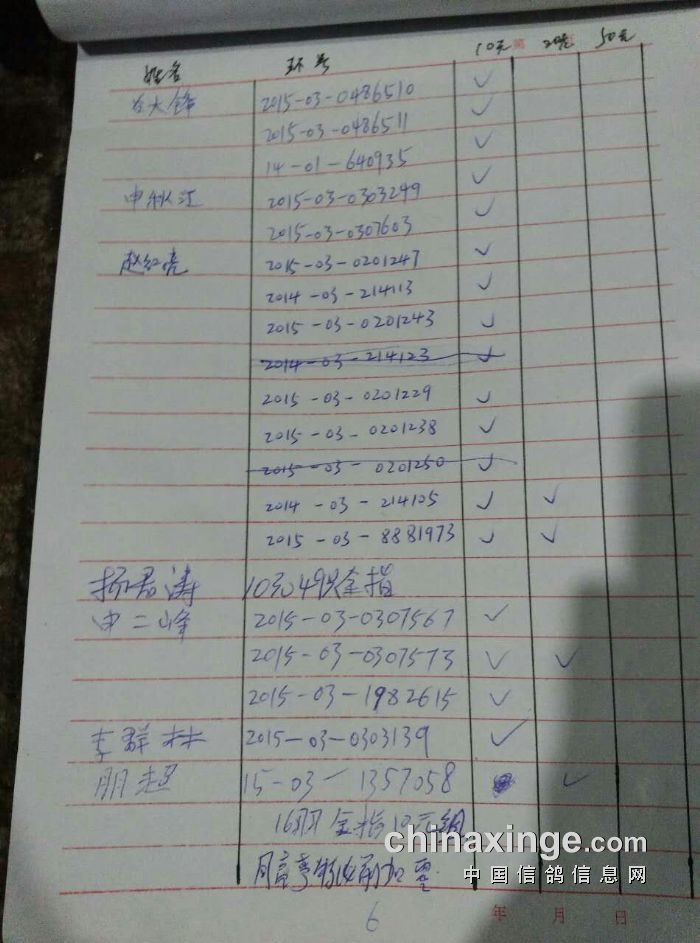 姓名 环号 10元 20元 50元
2015-03-0486510 ✓
2015-03-0486511 ✓
14-01-640935 ✓
申秋江 2015-03-0303249 ✓
2015-03-0307603 ✓
赵红亮 2015-03-0201247 ✓
2014-03-214113 ✓
2015-03-0201243 ✓
2014-03-214123 ✓
2015-03-0201229 ✓
2015-03-0201238 ✓
2015-03-0201250 ✓
2014-03-214105 ✓ ✓
2015-03-8881973 ✓ ✓
杨君涛 10元49只全指
申二峰 2015-03-0307567 ✓
2015-03-0307573 ✓ ✓
2015-03-1982615 ✓
李群林 2015-03-0303139 ✓
朋超 15-03-1357058 ✓
16羽全指10元组
chinaxinge.com
中国信鸽信息网
年 月 日
6